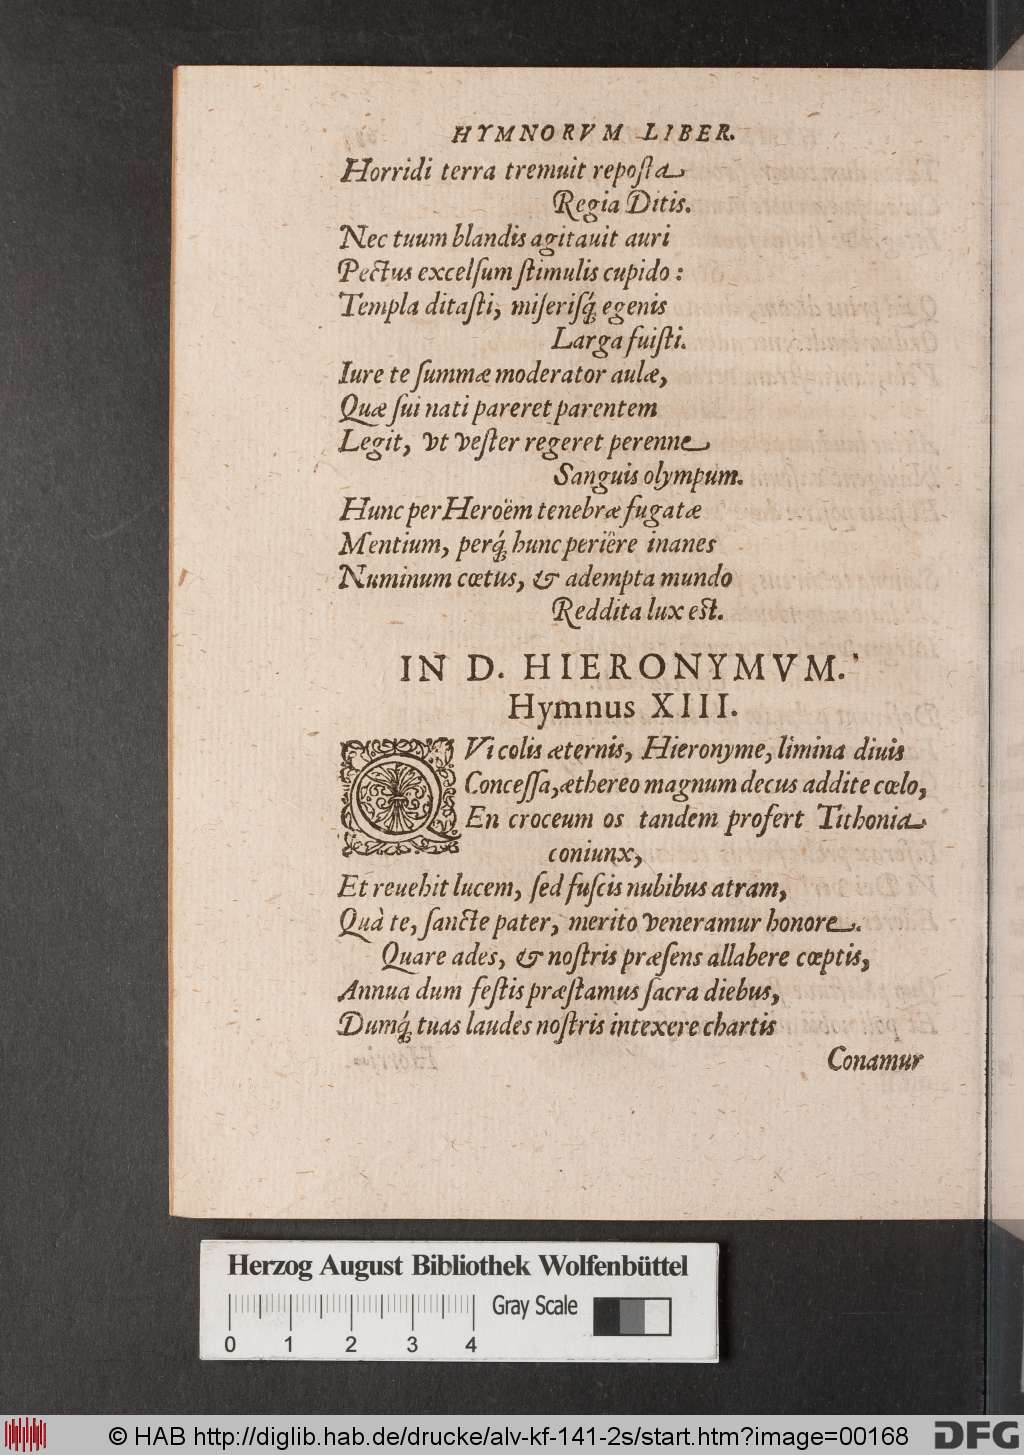 HYMNORVM LIBER.
Horridi terra tremuit reposta
Regia Ditis.
Nec tuum blandis agitauit auri
Pectus excelſum ſtimulis cupido :
Templa ditaſti, miſeriſq́; egenis
Larga fuiſti.
Iure te ſummæ moderator aulæ,
Quæ ſui nati pareret parentem
Legit, vt veſter regeret perenne
Sanguis olympum.
Hunc per Heroëm tenebræ fugatæ
Mentium, perq́; hunc periêre inanes
Numinum cœtus, & adempta mundo
Reddita lux est.
IN D. HIERONYMVM.
Hymnus XIII.
QVi colis æternis, Hieronyme, limina diuis
Conceſſa, æthereo magnum decus addite cœlo,
En croceum os tandem profert Tithonia
coniunx,
Et reuehit lucem, ſed fuſcis nubibus atram,
Quà te, ſancte pater, merito veneramur honore.
Quare ades, & noſtris præſens allabere cœptis,
Annua dum feſtis præſtamus ſacra diebus,
Dumq́; tuas laudes noſtris intexere chartis
Conamur
Herzog August Bibliothek Wolfenbüttel
Gray Scale
0 1 2 3 4
© HAB http://diglib.hab.de/drucke/alv-kf-141-2s/start.htm?image=00168
DFG